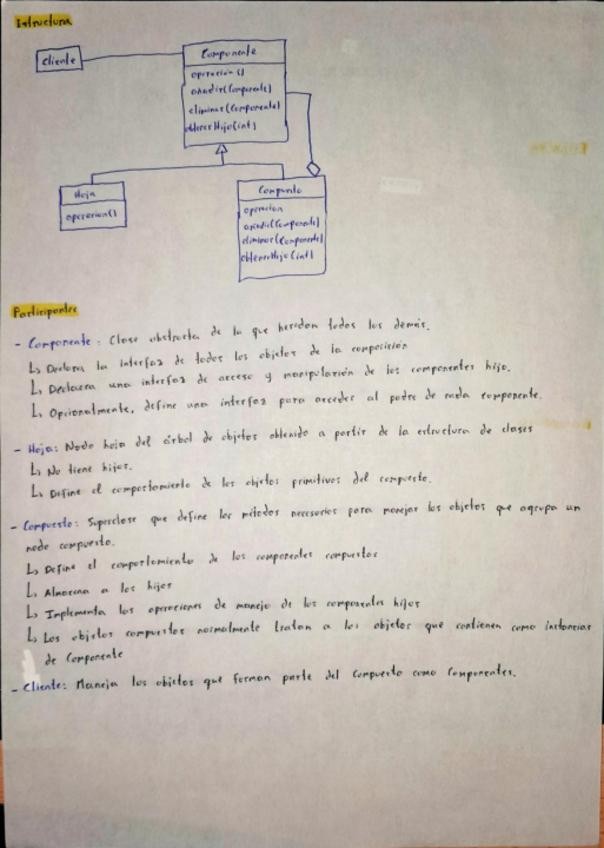 Estructura
Cliente
Componente
operación()
añadir(Componente)
eliminar(Componente)
obtenerHijo(int)
Hoja
operacion()
Compuesto
operacion
añadir(Componente)
eliminar(Componente)
obtenerHijo(int)
Participantes
- Componente: Clase abstracta de la que heredan todos los demás.
↳ Declara la interfaz de todos los objetos de la composición
↳ Declara una interfaz de acceso y manipulación de los componentes hijo.
↳ Opcionalmente, define una interfaz para acceder al padre de cada componente.
- Hoja: Nodo hoja del árbol de objetos obtenido a partir de la estructura de clases
↳ No tiene hijos.
↳ Define el comportamiento de los objetos primitivos del compuesto.
- Compuesto: Superclase que define los métodos necesarios para manejar los objetos que agrupa un
nodo compuesto.
↳ Define el comportamiento de los componentes compuestos
↳ Almacena a los hijos
↳ Implementa las operaciones de manejo de los componentes hijos
↳ Los objetos compuestos normalmente tratan a los objetos que contienen como instancias
de Componente
- Cliente: Maneja los objetos que forman parte del compuesto como Componentes.